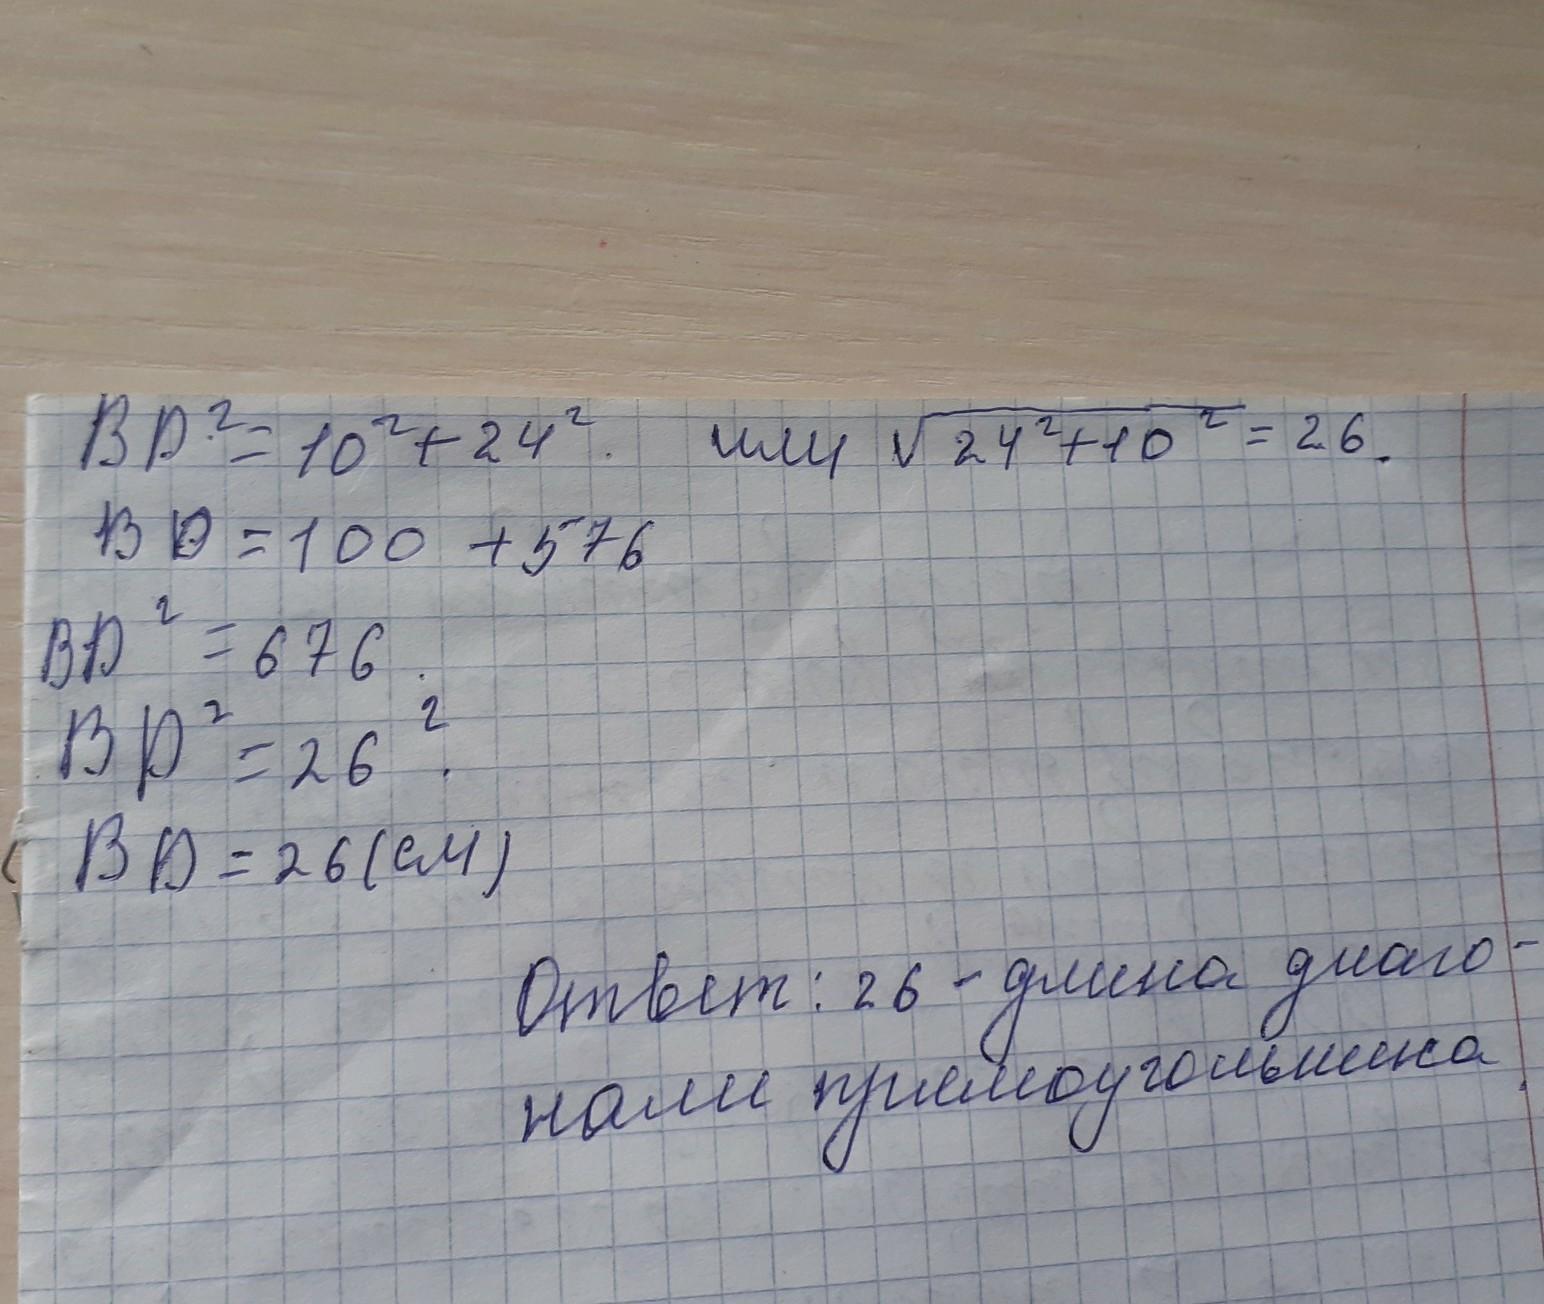 BD² = 10² + 24². или √24²+10² = 26.
BD = 100 + 576
BD² = 676.
BD² = 26².
BD = 26 (см)
Ответ: 26 - длина диаго-
нали прямоугольника.